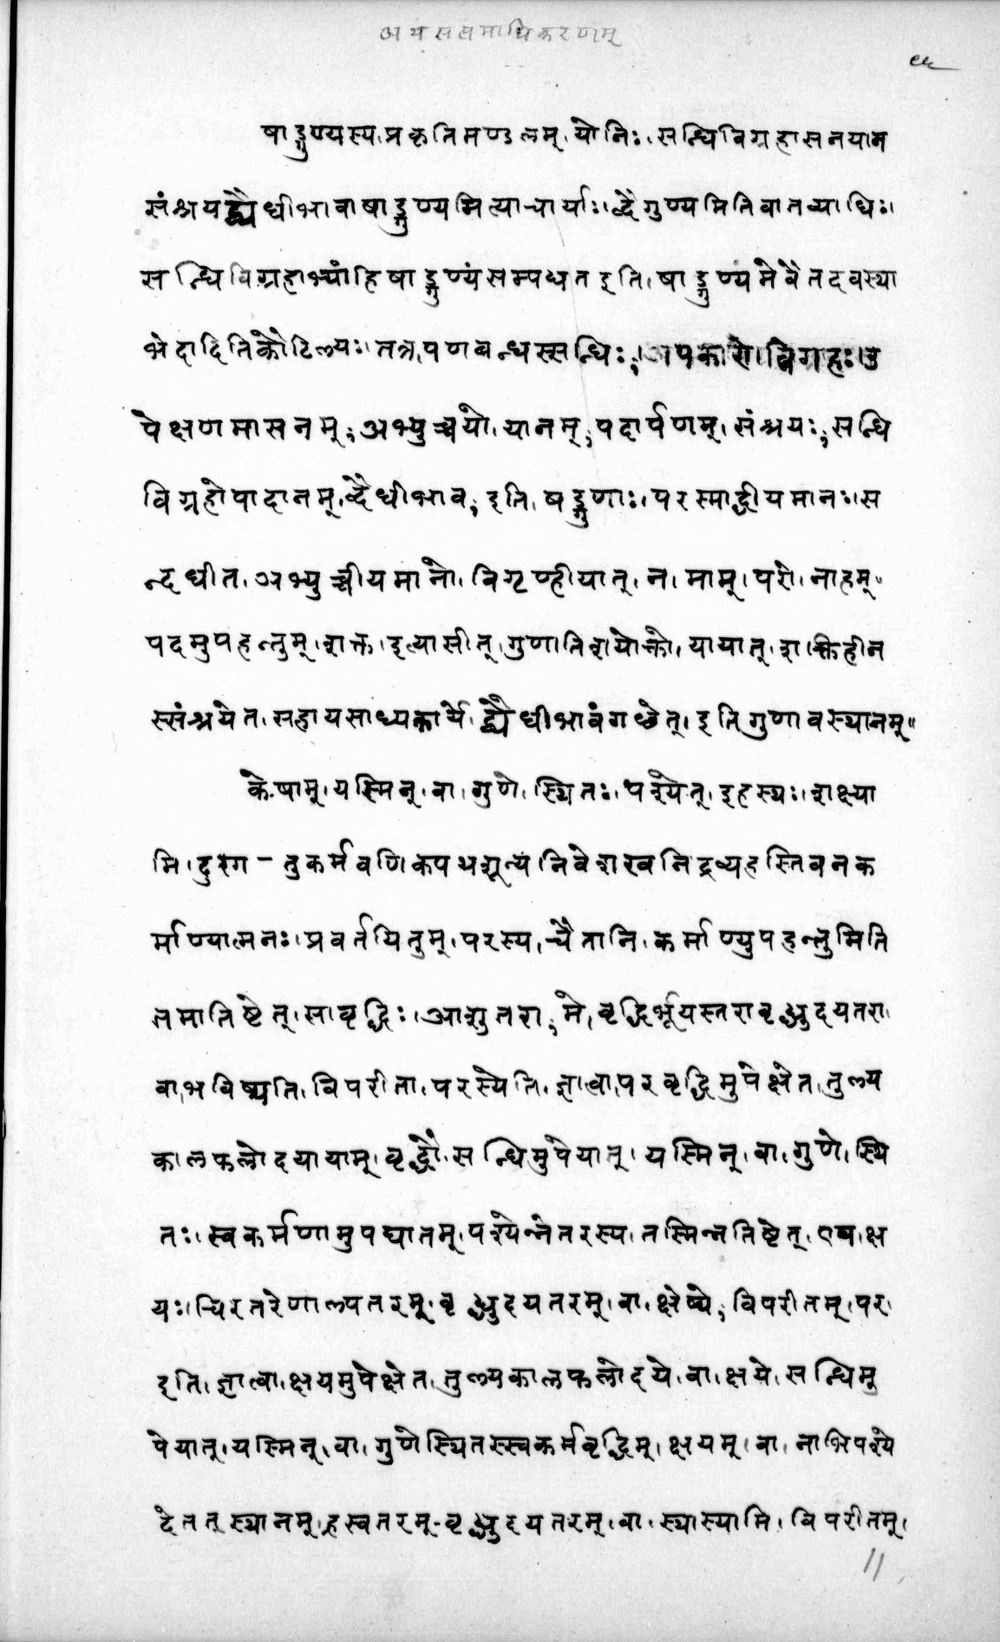 अथ सप्तमाधिकरणम्
षाड्गुण्यस्य।प्रकृतिमण्डलम्।योनिः।सन्धिविग्रहासनयान
संश्रयद्वैधीभावाषाड्गुण्यमित्याचार्याः।द्वैगुण्यमितिवातव्याधिः।
सन्धिविग्रहाभ्यांहिषाड्गुण्यंसम्पद्यतइति।षाड्गुण्यमेवैतदवस्था
भेदादितिकौटिल्यः।तत्र।पणबन्धस्सन्धिः;।अपकारो।विग्रहः।उ
पेक्षणमासनम्;अभ्युच्चयो।यानम्;परार्पणम्।संश्रयः;सन्धि
विग्रहोपादानम्।द्वैधीभाव;इति।षड्गुणाः।परस्माद्धीयमानः।स
न्दधीत।अभ्युच्चीयमानो।विगृण्हीयात्।न।माम्।परो।नाहम्॥
परमुपहन्तुम्।शक्त।इत्यासीत्।गुणातिशयोक्तो।यायात्।शक्तिहीन
स्संश्रयेत।सहायसाध्यकार्ये।द्वैधीभावंगच्छेत्।इतिगुणावस्थानम्॥
केषाम्।यस्मिन्।वा।गुणे।स्थितः।पश्येत्।इहस्थः।शक्ष्या
मि।दुरग - तुकर्मवणिक्पथशून्यंनिवेशखनिद्रव्यहस्तिवनक
र्माण्यात्मनः।प्रवर्तयितुम्।परस्य।चैतानि।कर्माण्युपहन्तुमिति
तमातिष्टेत्।सावृद्धिः।आशुतरा;मे।वृद्धिर्भूयस्तरावृध्युदयतरा।
वा।भविष्यति।विपरीता।परस्येति।ज्ञात्वा।परवृद्धिमुपेक्षेत।तुल्य
कालफलोदयायाम्।वृद्धौ।सन्धिमुपेयात्।यस्मिन्।वा।गुणे।स्थि
तः।स्वकर्मणामुपघातम्।पश्येन्नेतरस्य।तस्मिन्नतिष्टेत्।एष।क्ष
यः।चिरतरेणाल्पतरम्।वृध्युदयतरम्।वा।क्षेष्ये;विपरीतम्।पर।
इति।ज्ञात्वा।क्षयमुपेक्षेत।तुल्यकालफलोदये।वा।क्षये।सन्धिमु
पेयात्।यस्मिन्।वा।गुणेस्थितस्स्वकर्मवृद्धिम्।क्षयम्।वा।नाभिपश्ये
देतत्स्थानम्।ह्रस्वतरम्-वृध्युदयतरम्।वा।स्थास्यामि।विपरीतम्।
11